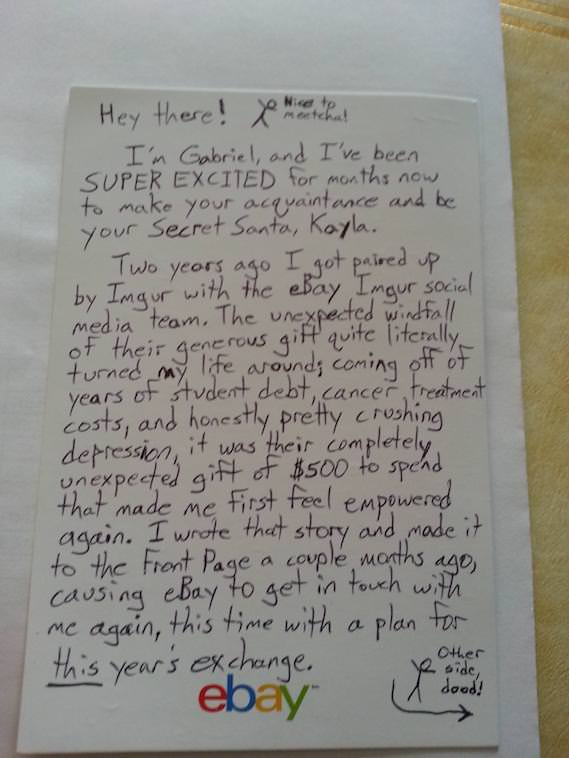 Hey there! Nice to meetcha!
I'm Gabriel, and I've been
SUPER EXCITED for months now
to make your acquaintance and be
your Secret Santa, Kayla.
Two years ago I got paired up
by Imgur with the eBay Imgur social
media team. The unexpected windfall
of their generous gift quite literally
turned my life around; coming off of
years of student debt, cancer treatment
costs, and honestly pretty crushing
depression, it was their completely
unexpected gift of $500 to spend
that made me first feel empowered
again. I wrote that story and made it
to the Front Page a couple months ago,
causing eBay to get in touch with
me again, this time with a plan for
this year's exchange.
Other
side,
dood!
ebay™